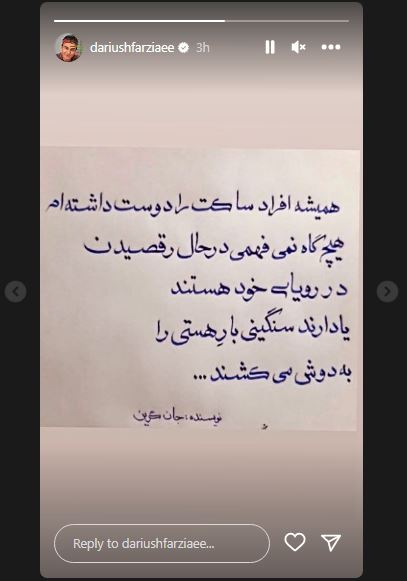 dariushfarziaee 3h
همیشه افراد ساکت را دوست داشته‌ام
هیچ گاه نمی فهمی در حال رقصیدن
در رویای خود هستند
یا دارند سنگینی بار هستی را
به دوش می کشند...
نویسنده: جان گرین
Reply to dariushfarziaee...